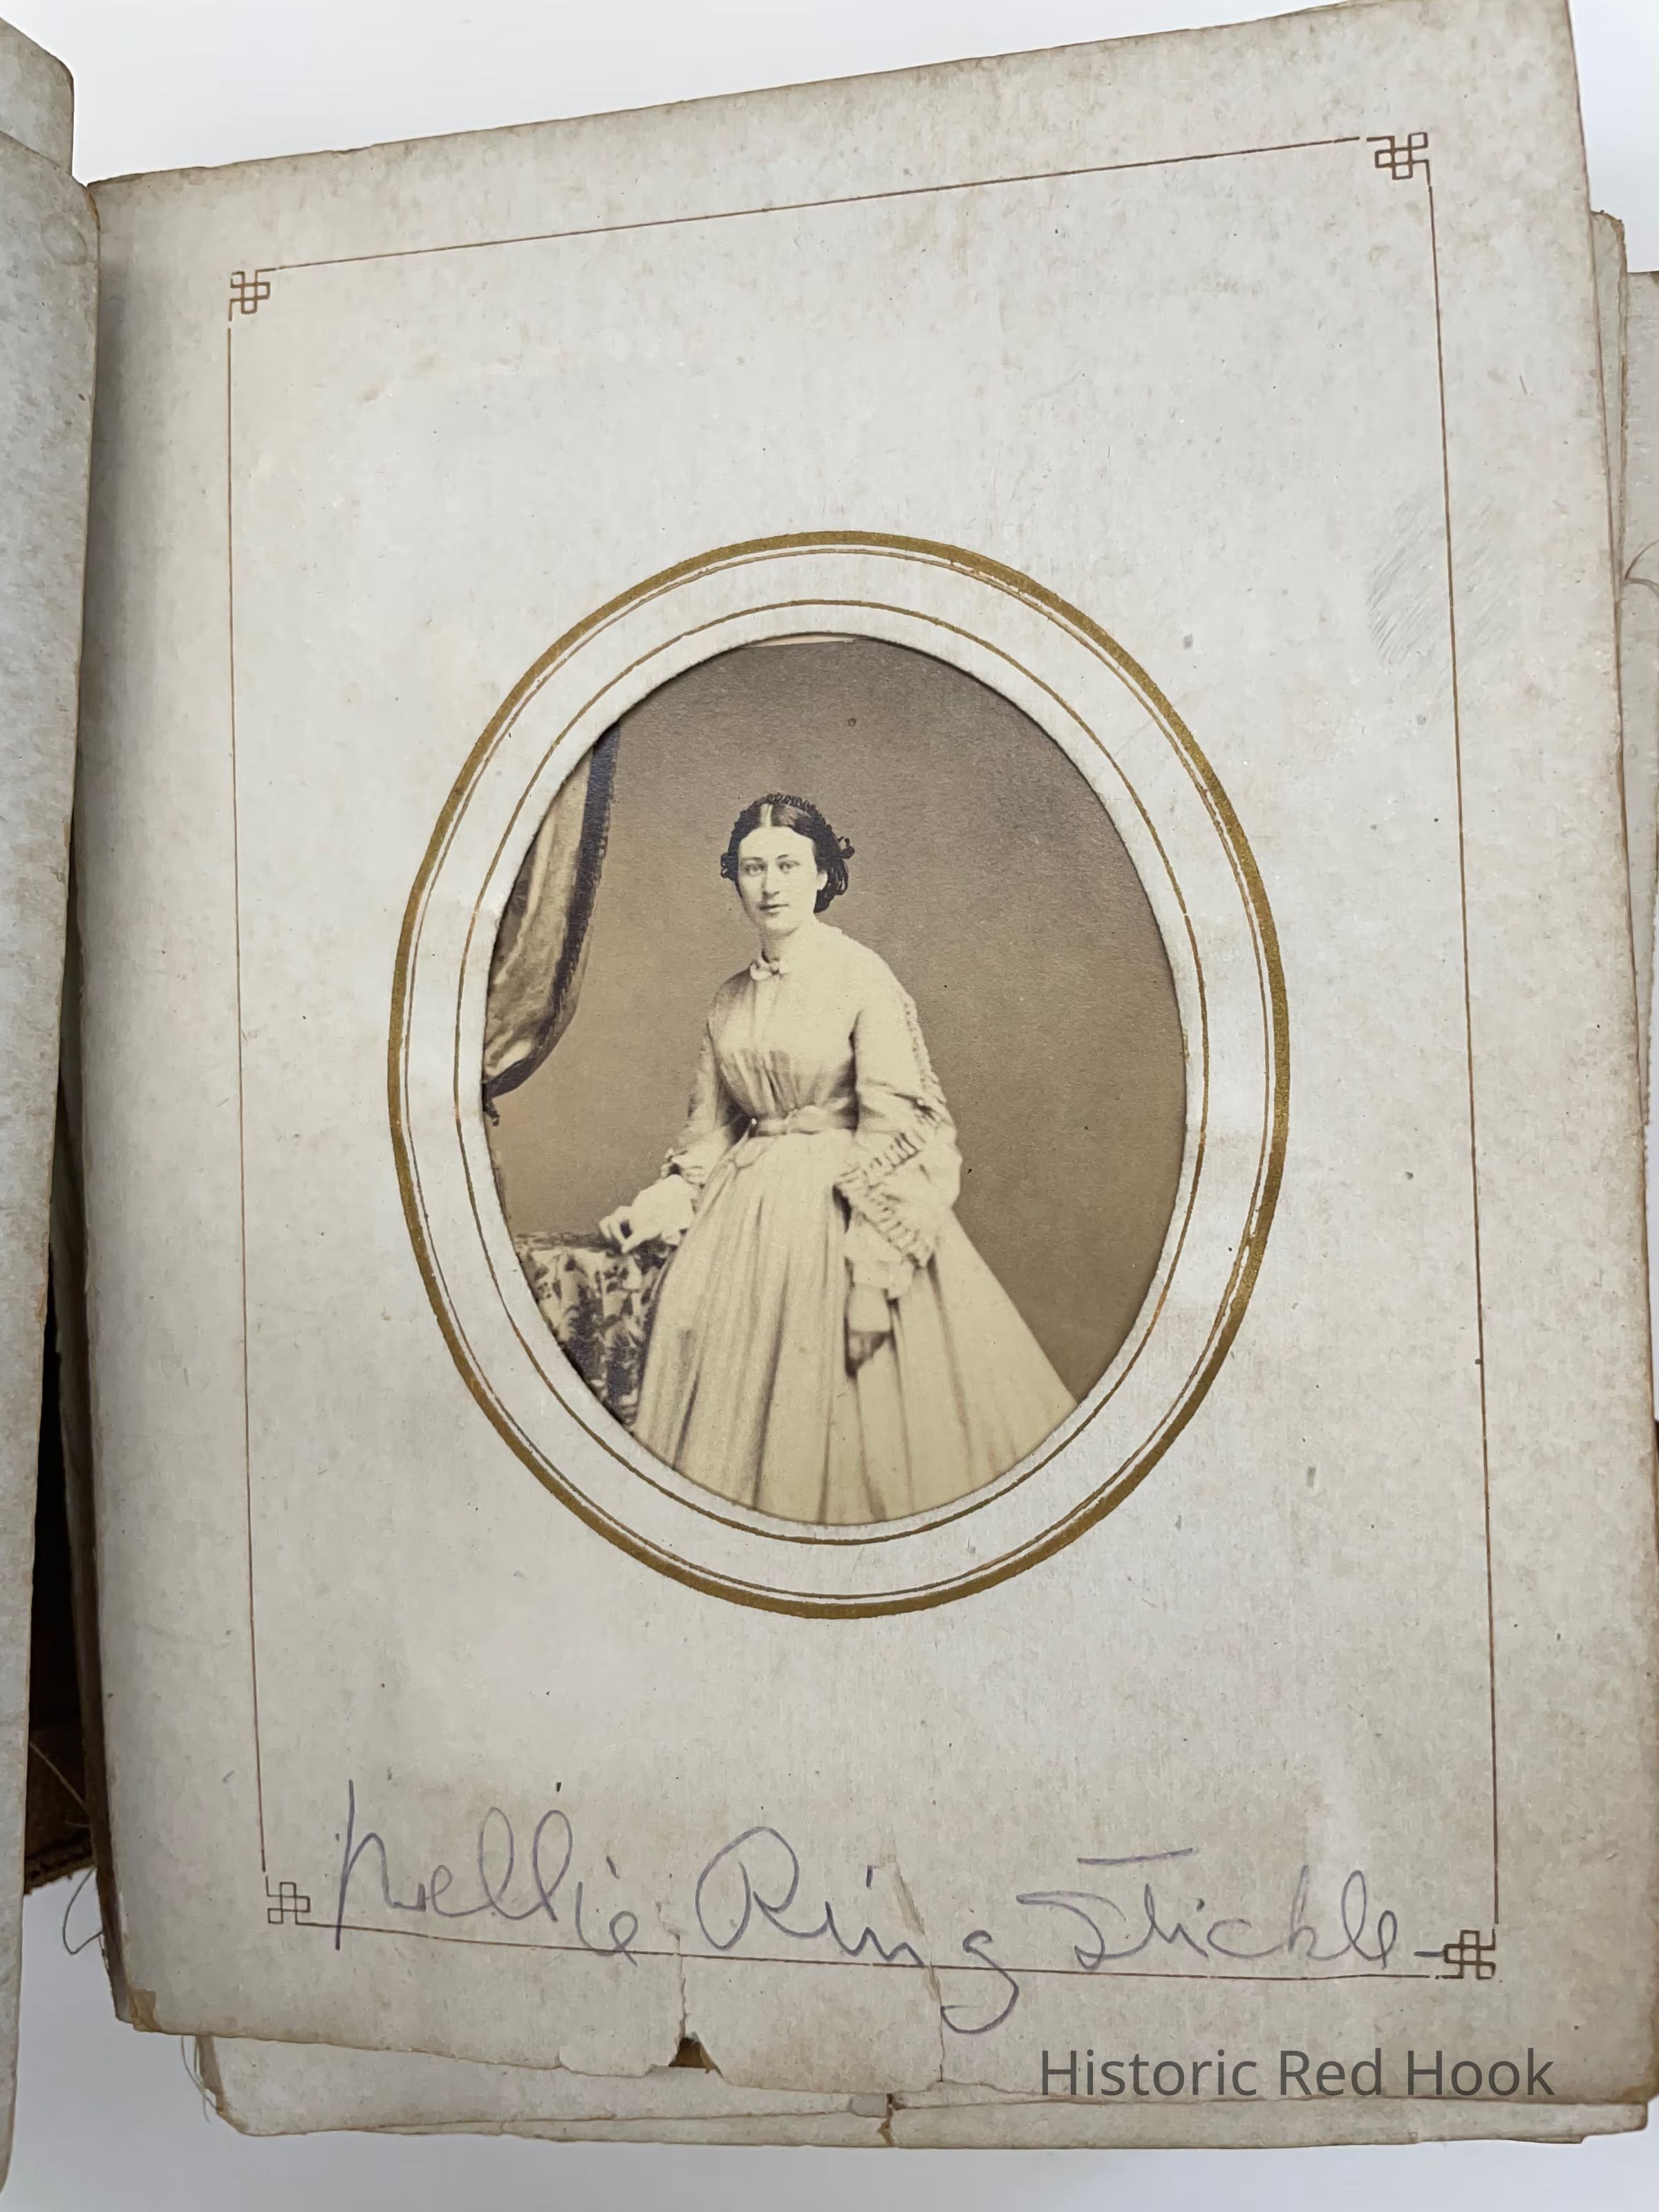 Nellie Ring Stickle
Historic Red Hook